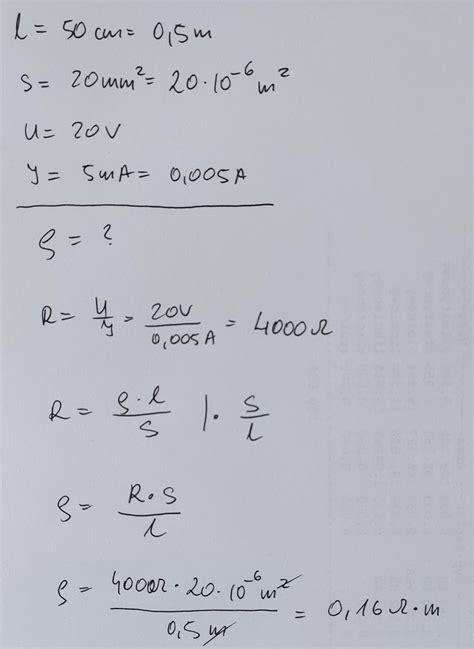 l = 50 cm = 0,5 m
S = 20 mm² = 20 · 10⁻⁶ m²
U = 20V
I = 5 mA = 0,005 A
ρ = ?
R = U/I = 20V/0,005A = 4000 Ω
R = ρ · l/S | · S/l
ρ = R · S/l
ρ = 4000Ω · 20 · 10⁻⁶ m²/0,5 m = 0,16 Ω · m